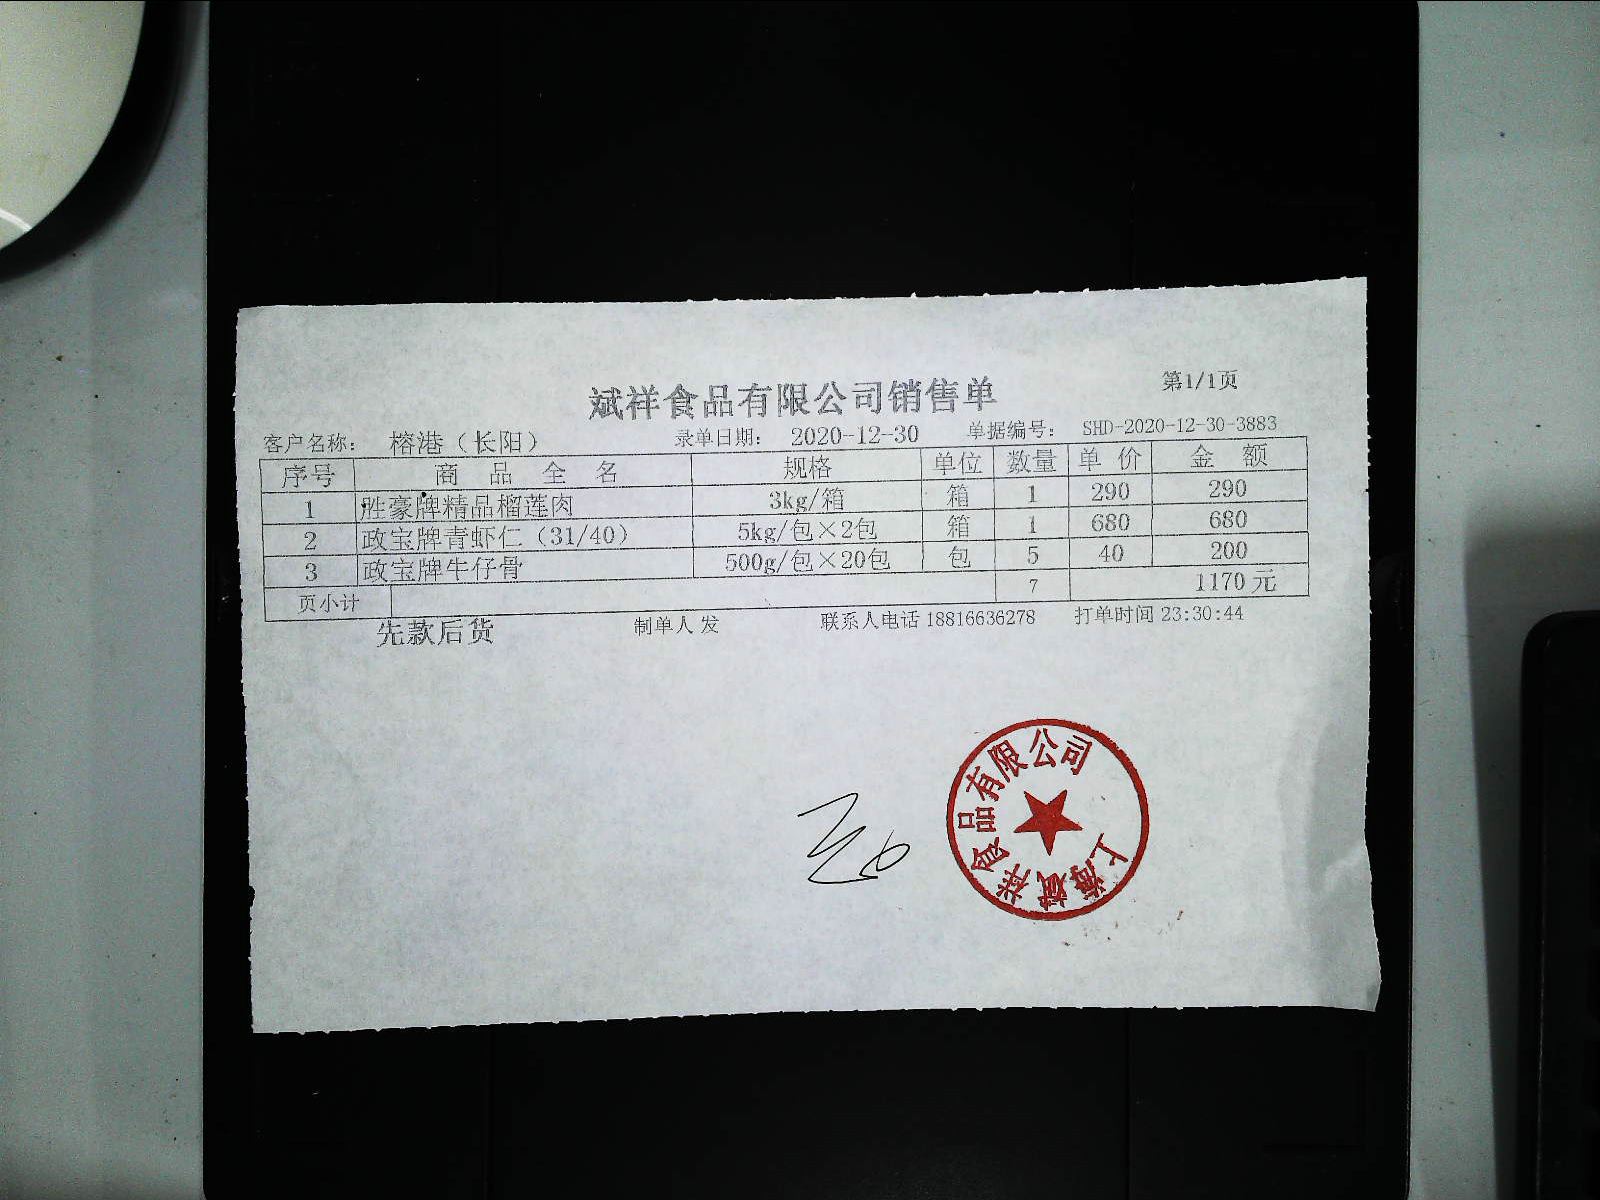 斌祥食品有限公司销售单
第1/1页
客户名称： 榕港（长阳） 录单日期： 2020-12-30 单据编号： SHD-2020-12-30-3883
序号 商品全名 规格 单位 数量 单价 金额
1 胜豪牌精品榴莲肉 3kg/箱 箱 1 290 290
2 政宝牌青虾仁（31/40） 5kg/包×2包 箱 1 680 680
3 政宝牌牛仔骨 500g/包×20包 包 5 40 200
页小计 7 1170元
先款后货 制单人 发 联系人电话 18816636278 打单时间 23:30:44
上海斌祥食品有限公司